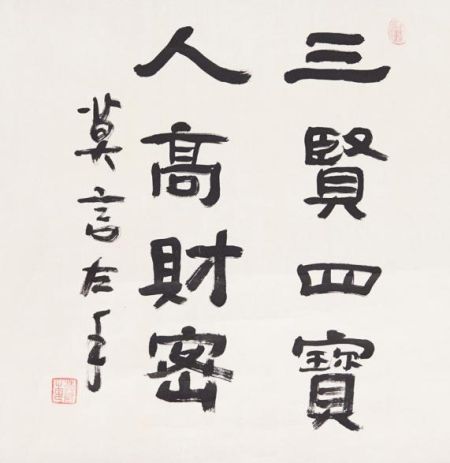 三賢四寶
人髙財密
莫言左手